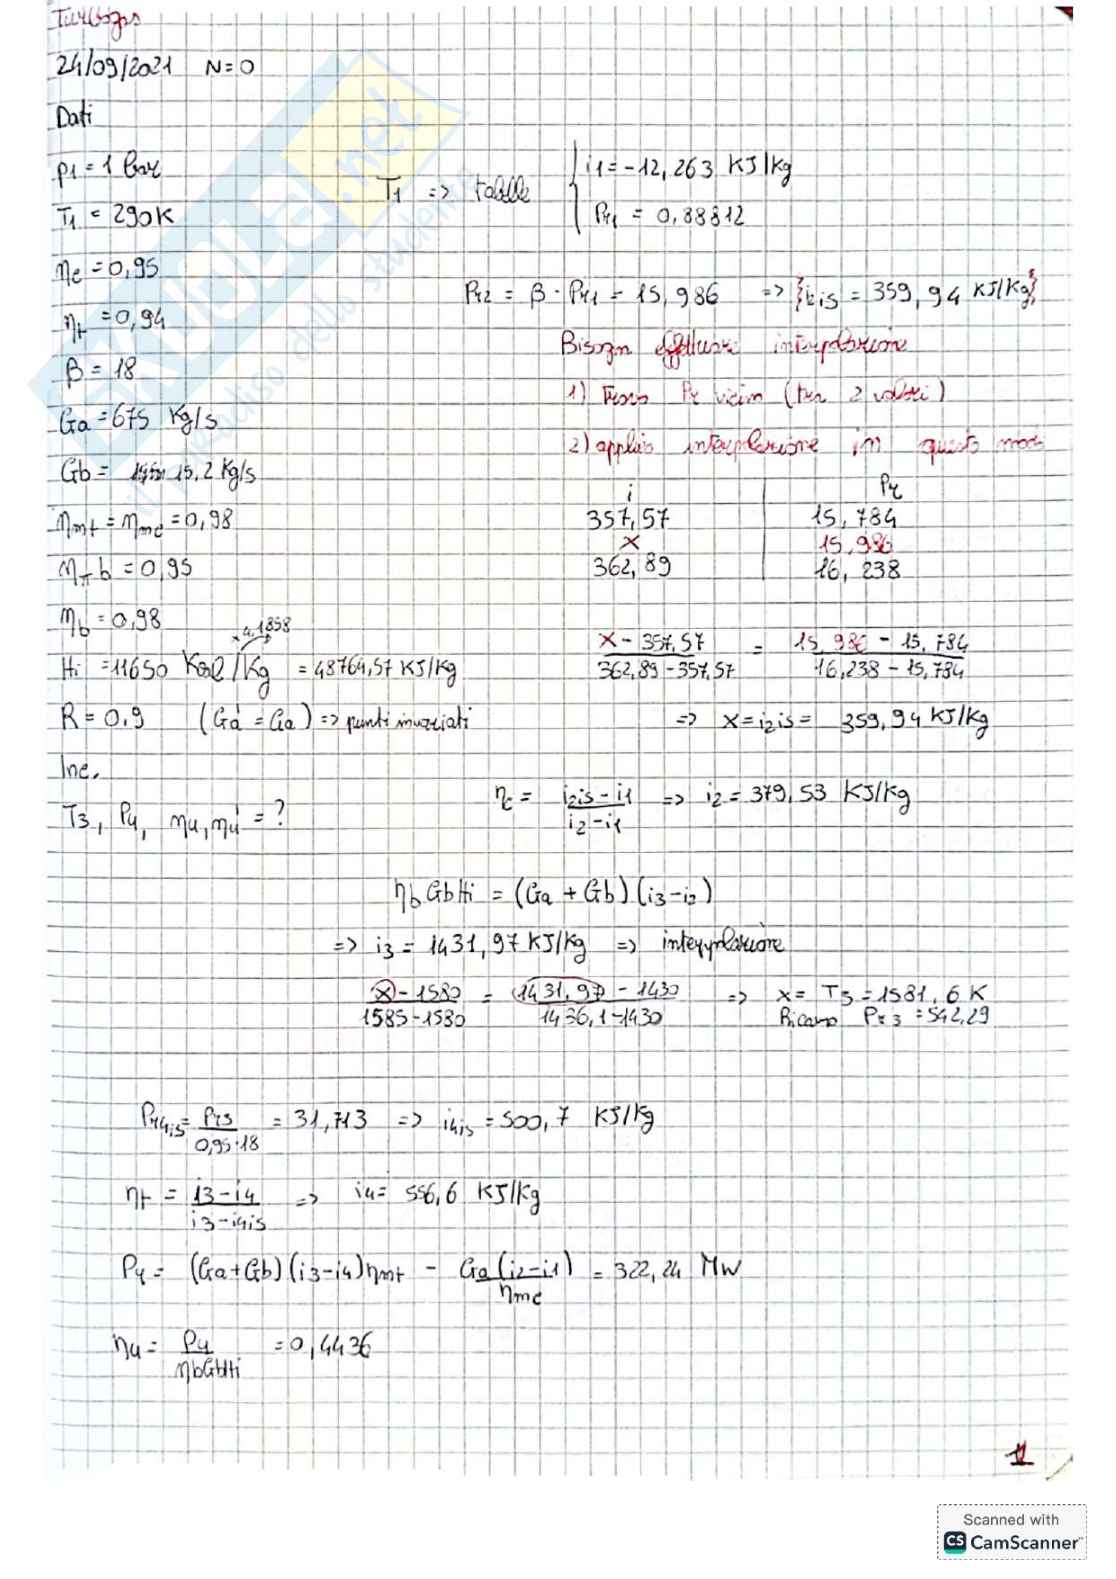 Turbogas
24/09/2021 N=0
Dati
p1 = 1 bar
T1 = 290K
ηc = 0,95
ηt = 0,94
β = 18
Ga = 675 Kg/s
Gb = 15,2 Kg/s
ηmt = ηmc = 0,98
ηπb = 0,95
ηb = 0,98
x 4,1858
Hi = 11650 Kcal/Kg = 48764,57 KJ/Kg
R = 0,9 (Ga' = Ga) => punti invariati
Inc.
T3, Pu, ηu, ηu' = ?
T1 => tabelle { i1 = -12,263 KJ/Kg
Pr1 = 0,88812
Pr2 = β · Pr1 = 15,986 => {i2is = 359,94 KJ/Kg}
Bisogn effettuare interpolazione
1) Trovo Pr vicini (per 2 valori)
2) applico interpolazione in questo modo
i | Pr
357,57 | 15,784
x | 15,986
362,89 | 16,238
x - 357,57 / 362,89 - 357,57 = 15,986 - 15,784 / 16,238 - 15,784
=> x = i2is = 359,94 KJ/Kg
ηc = i2is - i1 / i2 - i1 => i2 = 379,53 KJ/Kg
ηb Gb Hi = (Ga + Gb) (i3 - i2)
=> i3 = 1431,97 KJ/Kg => interpolazione
x - 1580 / 1585 - 1580 = 1431,97 - 1430 / 1436,1 - 1430 => x = T3 = 1581,6 K
Ricavo Pr3 = 542,29
Pr4is = Pr3 / 0,95·18 = 31,713 => i4is = 500,7 KJ/Kg
ηt = i3 - i4 / i3 - i4is => i4 = 556,6 KJ/Kg
Pu = (Ga + Gb) (i3 - i4) ηmt - Ga (i2 - i1) / ηmc = 322,24 MW
ηu = Pu / ηb Gb Hi = 0,4436
11
SKUOLA.net
il paradiso dello studente
Scanned with
CS CamScanner